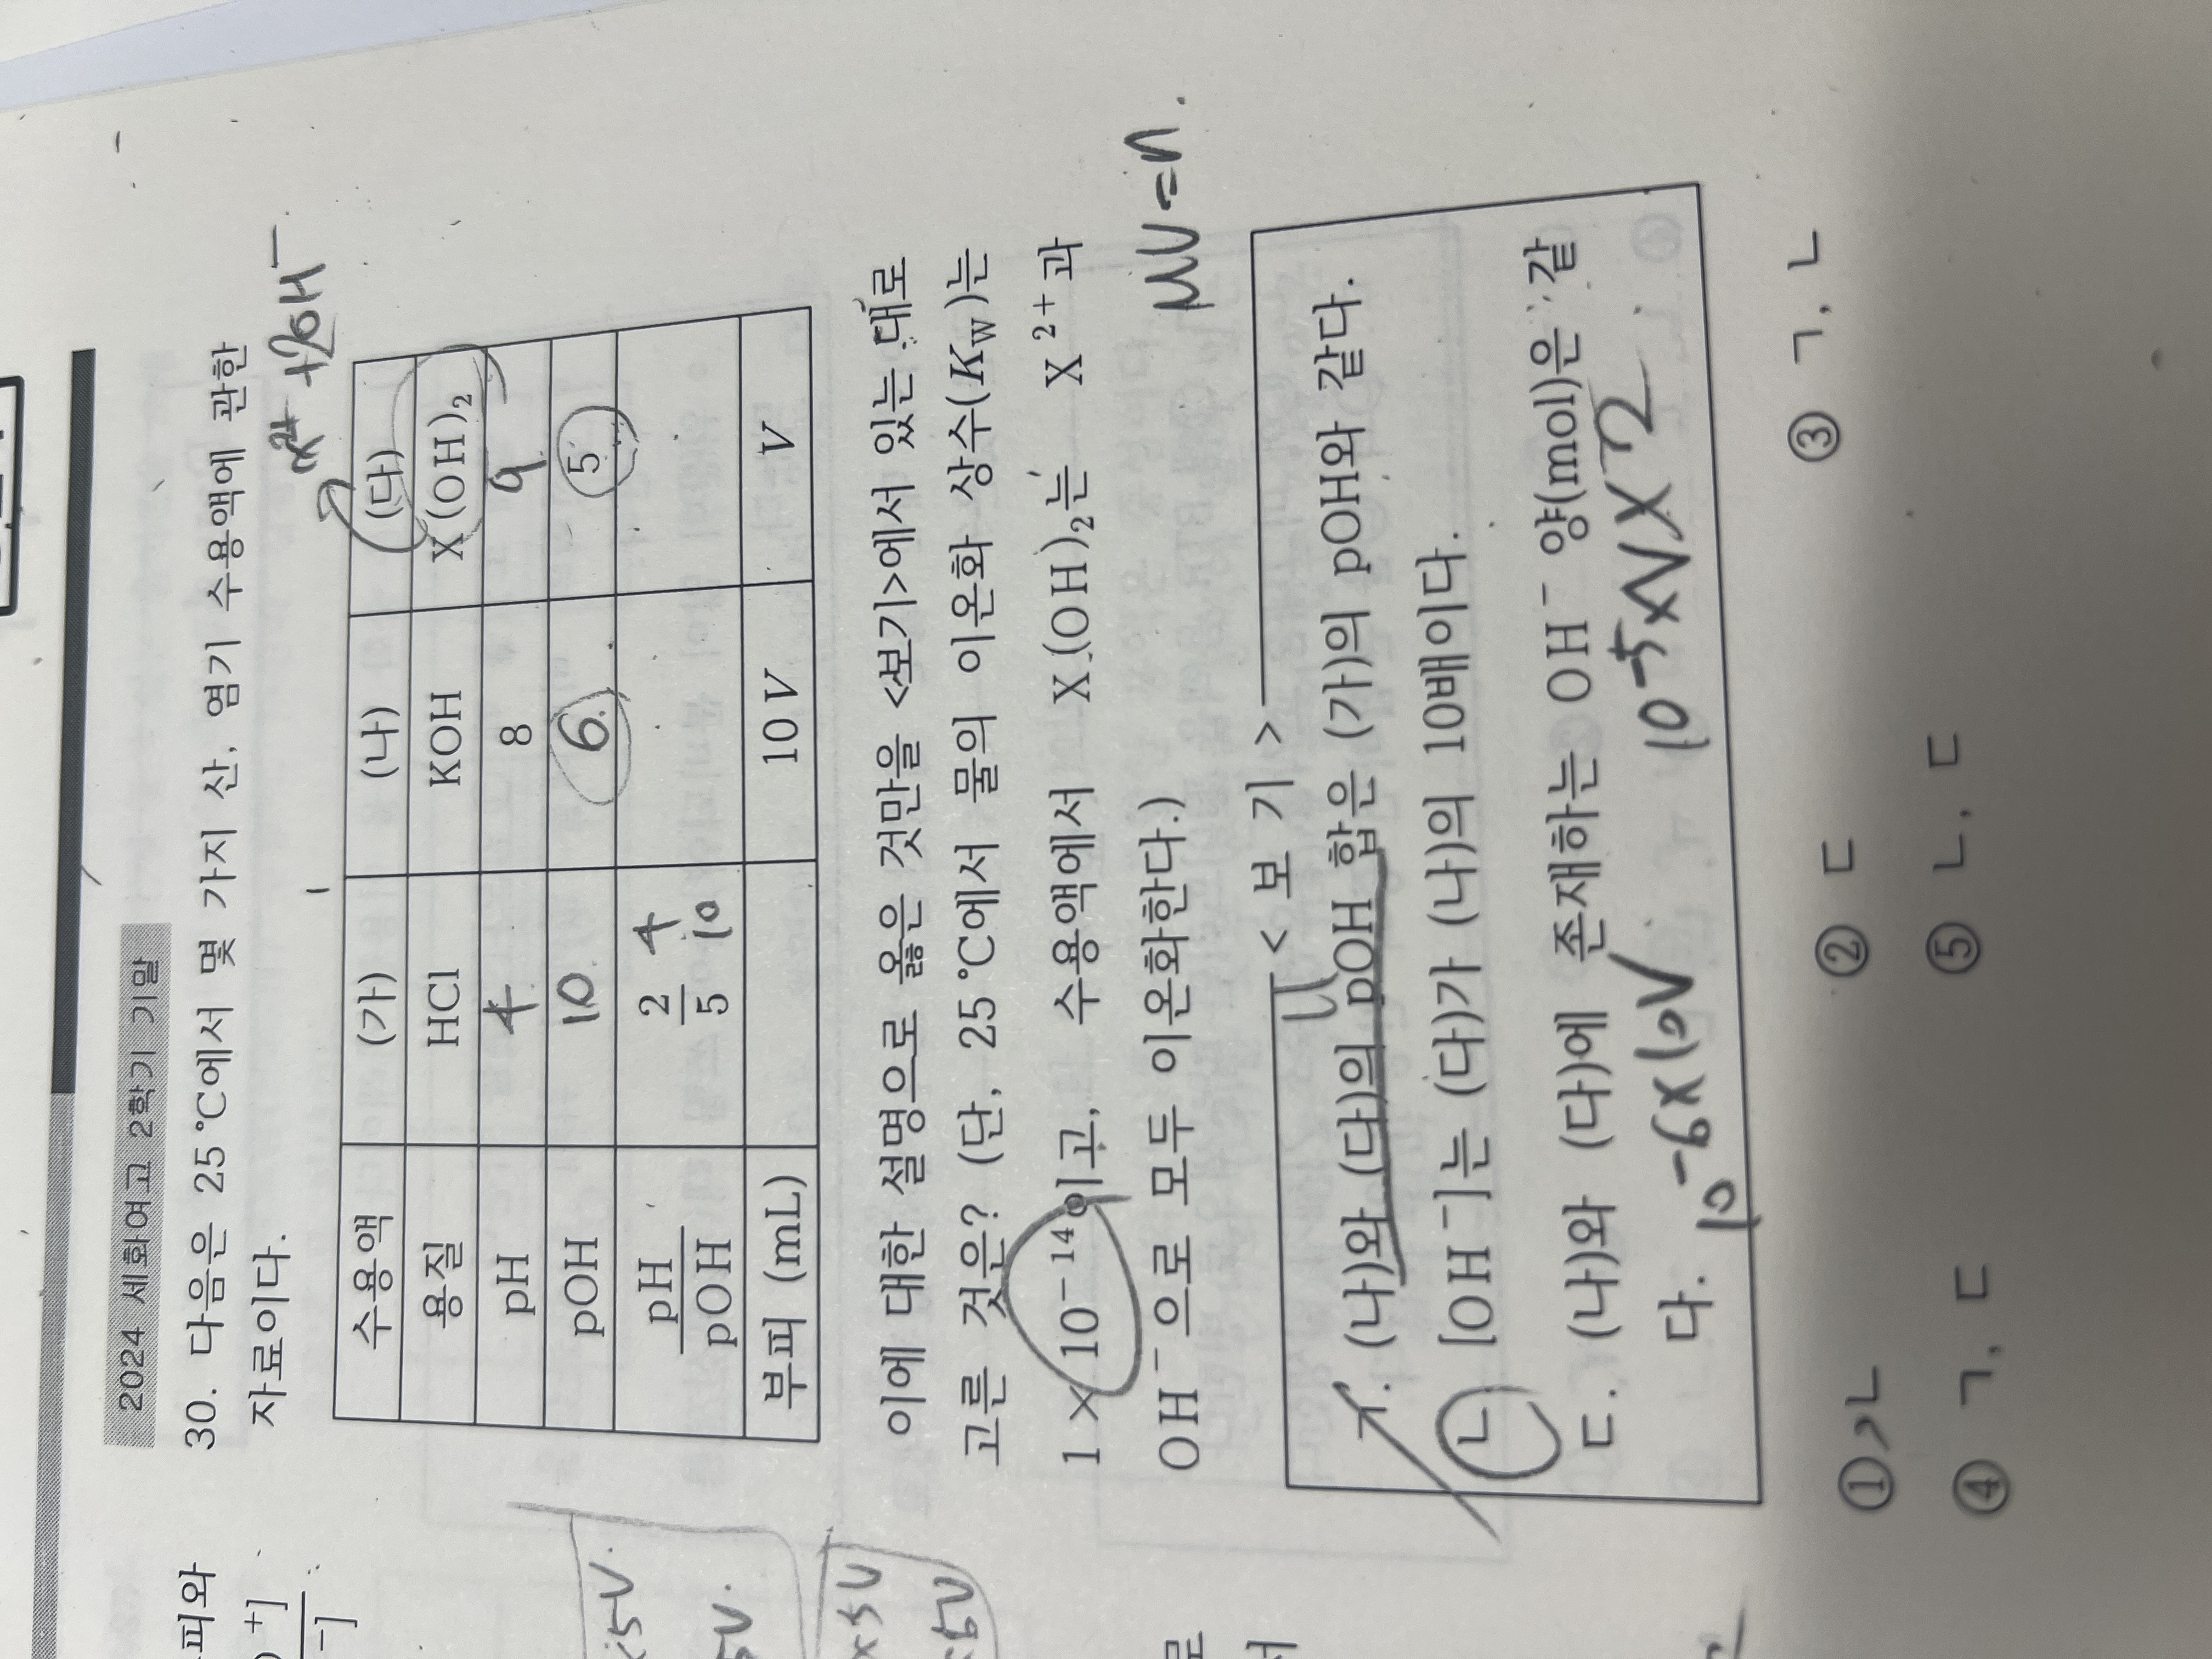 2024 세화여고 2학기 기말
30. 다음은 25 ℃에서 몇 가지 산, 염기 수용액에 관한
자료이다.
X²⁺ + 2OH⁻
수용액 (가) (나) (다)
용질 HCl KOH X(OH)₂
pH 4 8 9
pOH 10 6 5
pH/pOH 2/5 4/10
부피 (mL) 10V V
이에 대한 설명으로 옳은 것만을 <보기>에서 있는 대로
고른 것은? (단, 25 ℃에서 물의 이온화 상수(K_W)는
1×10⁻¹⁴이고, 수용액에서 X(OH)₂는 X²⁺과
OH⁻으로 모두 이온화한다.)
MV=n
<보 기>
11
ㄱ. (나)와 (다)의 pOH 합은 (가)의 pOH와 같다.
ㄴ. [OH⁻]는 (다)가 (나)의 10배이다.
ㄷ. (나)와 (다)에 존재하는 OH⁻ 양(mol)은 같
다.
10⁻⁶×10V 10⁻⁵×V×2
① ㄴ ② ㄷ ③ ㄱ, ㄴ
④ ㄱ, ㄷ ⑤ ㄴ, ㄷ
피와
×5V
5V.
×5V
×5V
로
서